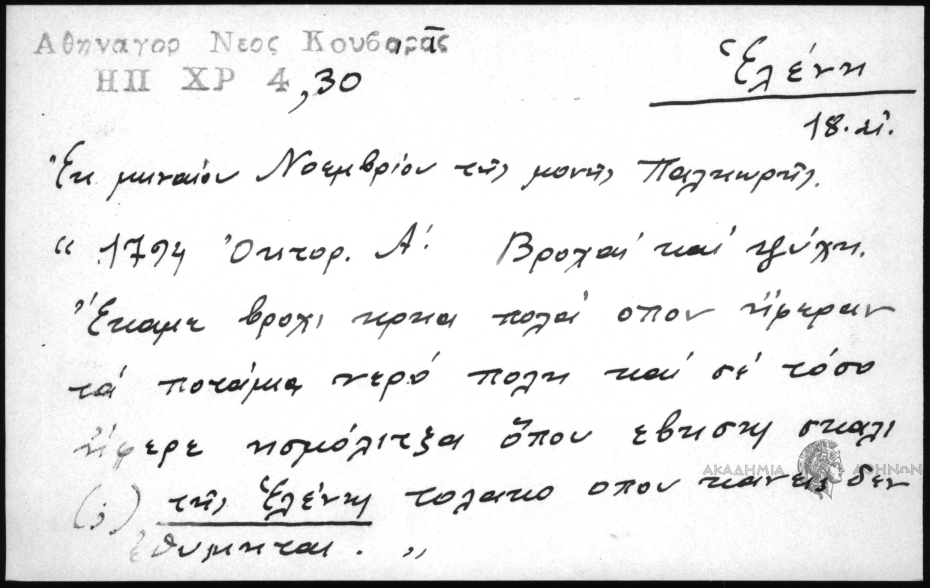 Αθηναγορ Νεος Κουβαρᾶς
ΗΠ ΧΡ 4,30
Ἑλένη
18.αἰ.
Ἐκ μηναίου Νοεμβρίου τῆς μονῆς Παλιωρῆς.
“ 1794 Ὀκτορ. Α΄. Βροχαί καί ψύχη.
Ἔκαμε βροχι κρια πολά οπου ἤφεραν
τά ποτάμια νερό πολη καί σέ τόσο
ἤφερε ὅπου σκαλι
(;) τῆς Ἑλένη οπου κανείς δεν
ἐθυμηται. „
ΑΚΑΔΗΜΙΑ ΑΘΗΝΩΝ